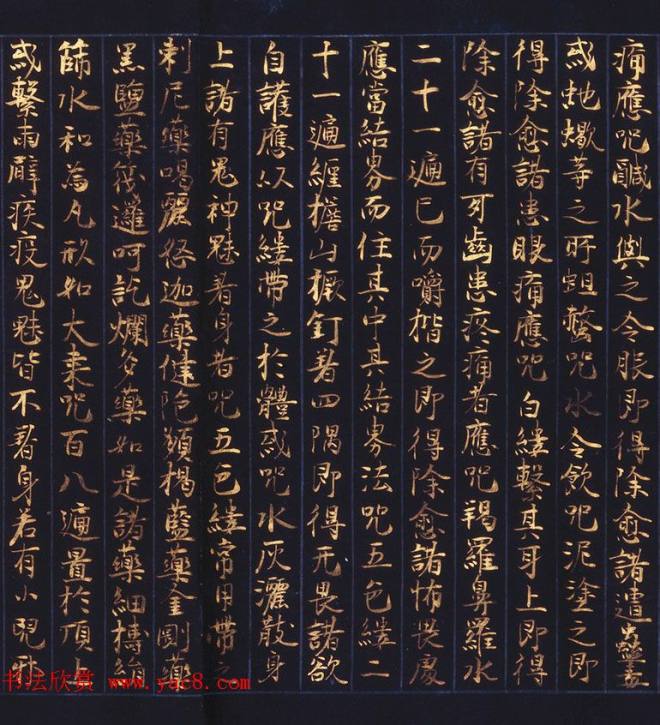 痛應咒鹹水與之令服即得除愈諸遭蠱毒
或虵蠍等之所蛆螫咒水令飲咒泥塗之即
得除愈諸患眼痛應咒白縷繫其耳上即得
除愈諸有牙齒患疼痛者應咒羯羅鼻羅水
二十一遍已而嚼楷之即得除愈諸怖畏處
應當結界而住其中其結界法咒五色縷二
十一遍纏檐山橛釘著四隅即得无畏諸欲
自護應以咒縷帶之於體或咒水灰灑散身
上諸有鬼神魅著身者咒五色縷常用帶之
刺尼藥喝麗怒迦藥健陀頞楬藍藥金剛藥
黑鹽藥筏邏呵訖爛多藥如是諸藥細擣絹
篩水和為丸形如大棗咒百八遍置於頂上
或繫兩臂疾疫鬼魅皆不著身若有小兒
书法欣赏 www.yac8.com